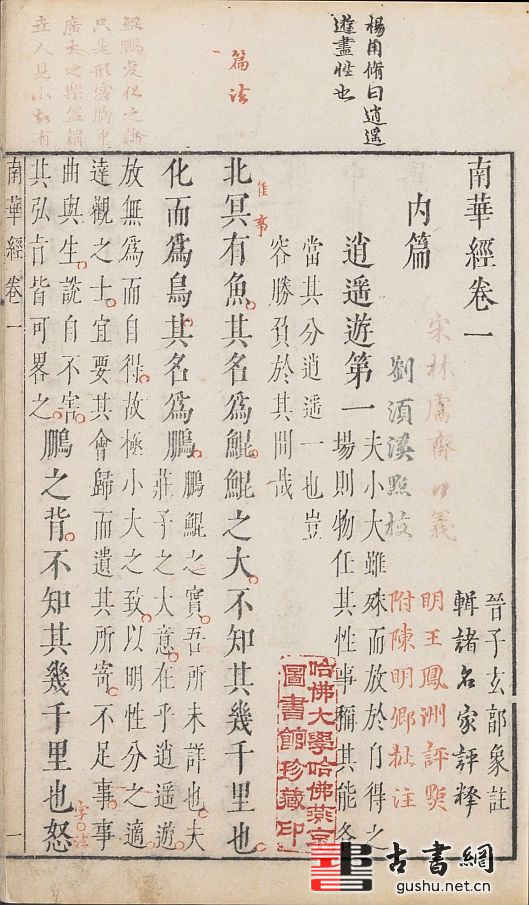 楊用脩曰逍遥
遊盡性也
篇法
鯤鵬變化之論
只是形容胸中
南華經卷一
晉子玄郭象註
輯諸名家評釋
宋林鬳齋口義
明王鳳洲評點
劉須溪點校
附陳明卿批注
內篇
逍遥遊第一
夫小大雖殊而放於自得之
場則物任其性事稱其能各
當其分逍遥一也豈
容勝負於其間哉
北冥有魚其名爲鯤鯤之大不知其幾千里也
化而爲鳥其名爲鵬
鵬鯤之實吾所未詳也夫
莊子之大意在乎逍遥遊
放無爲而自得故極小大之致以明性分之適
達觀之士宜要其會歸而遺其所寄不足事事
曲與生說自不害
其弘旨皆可畧之
鵬之背不知其幾千里也怒
字法
南華經
卷一
一
哈佛大學哈佛燕京
圖書館珍藏印
古書網
gushu.net.cn